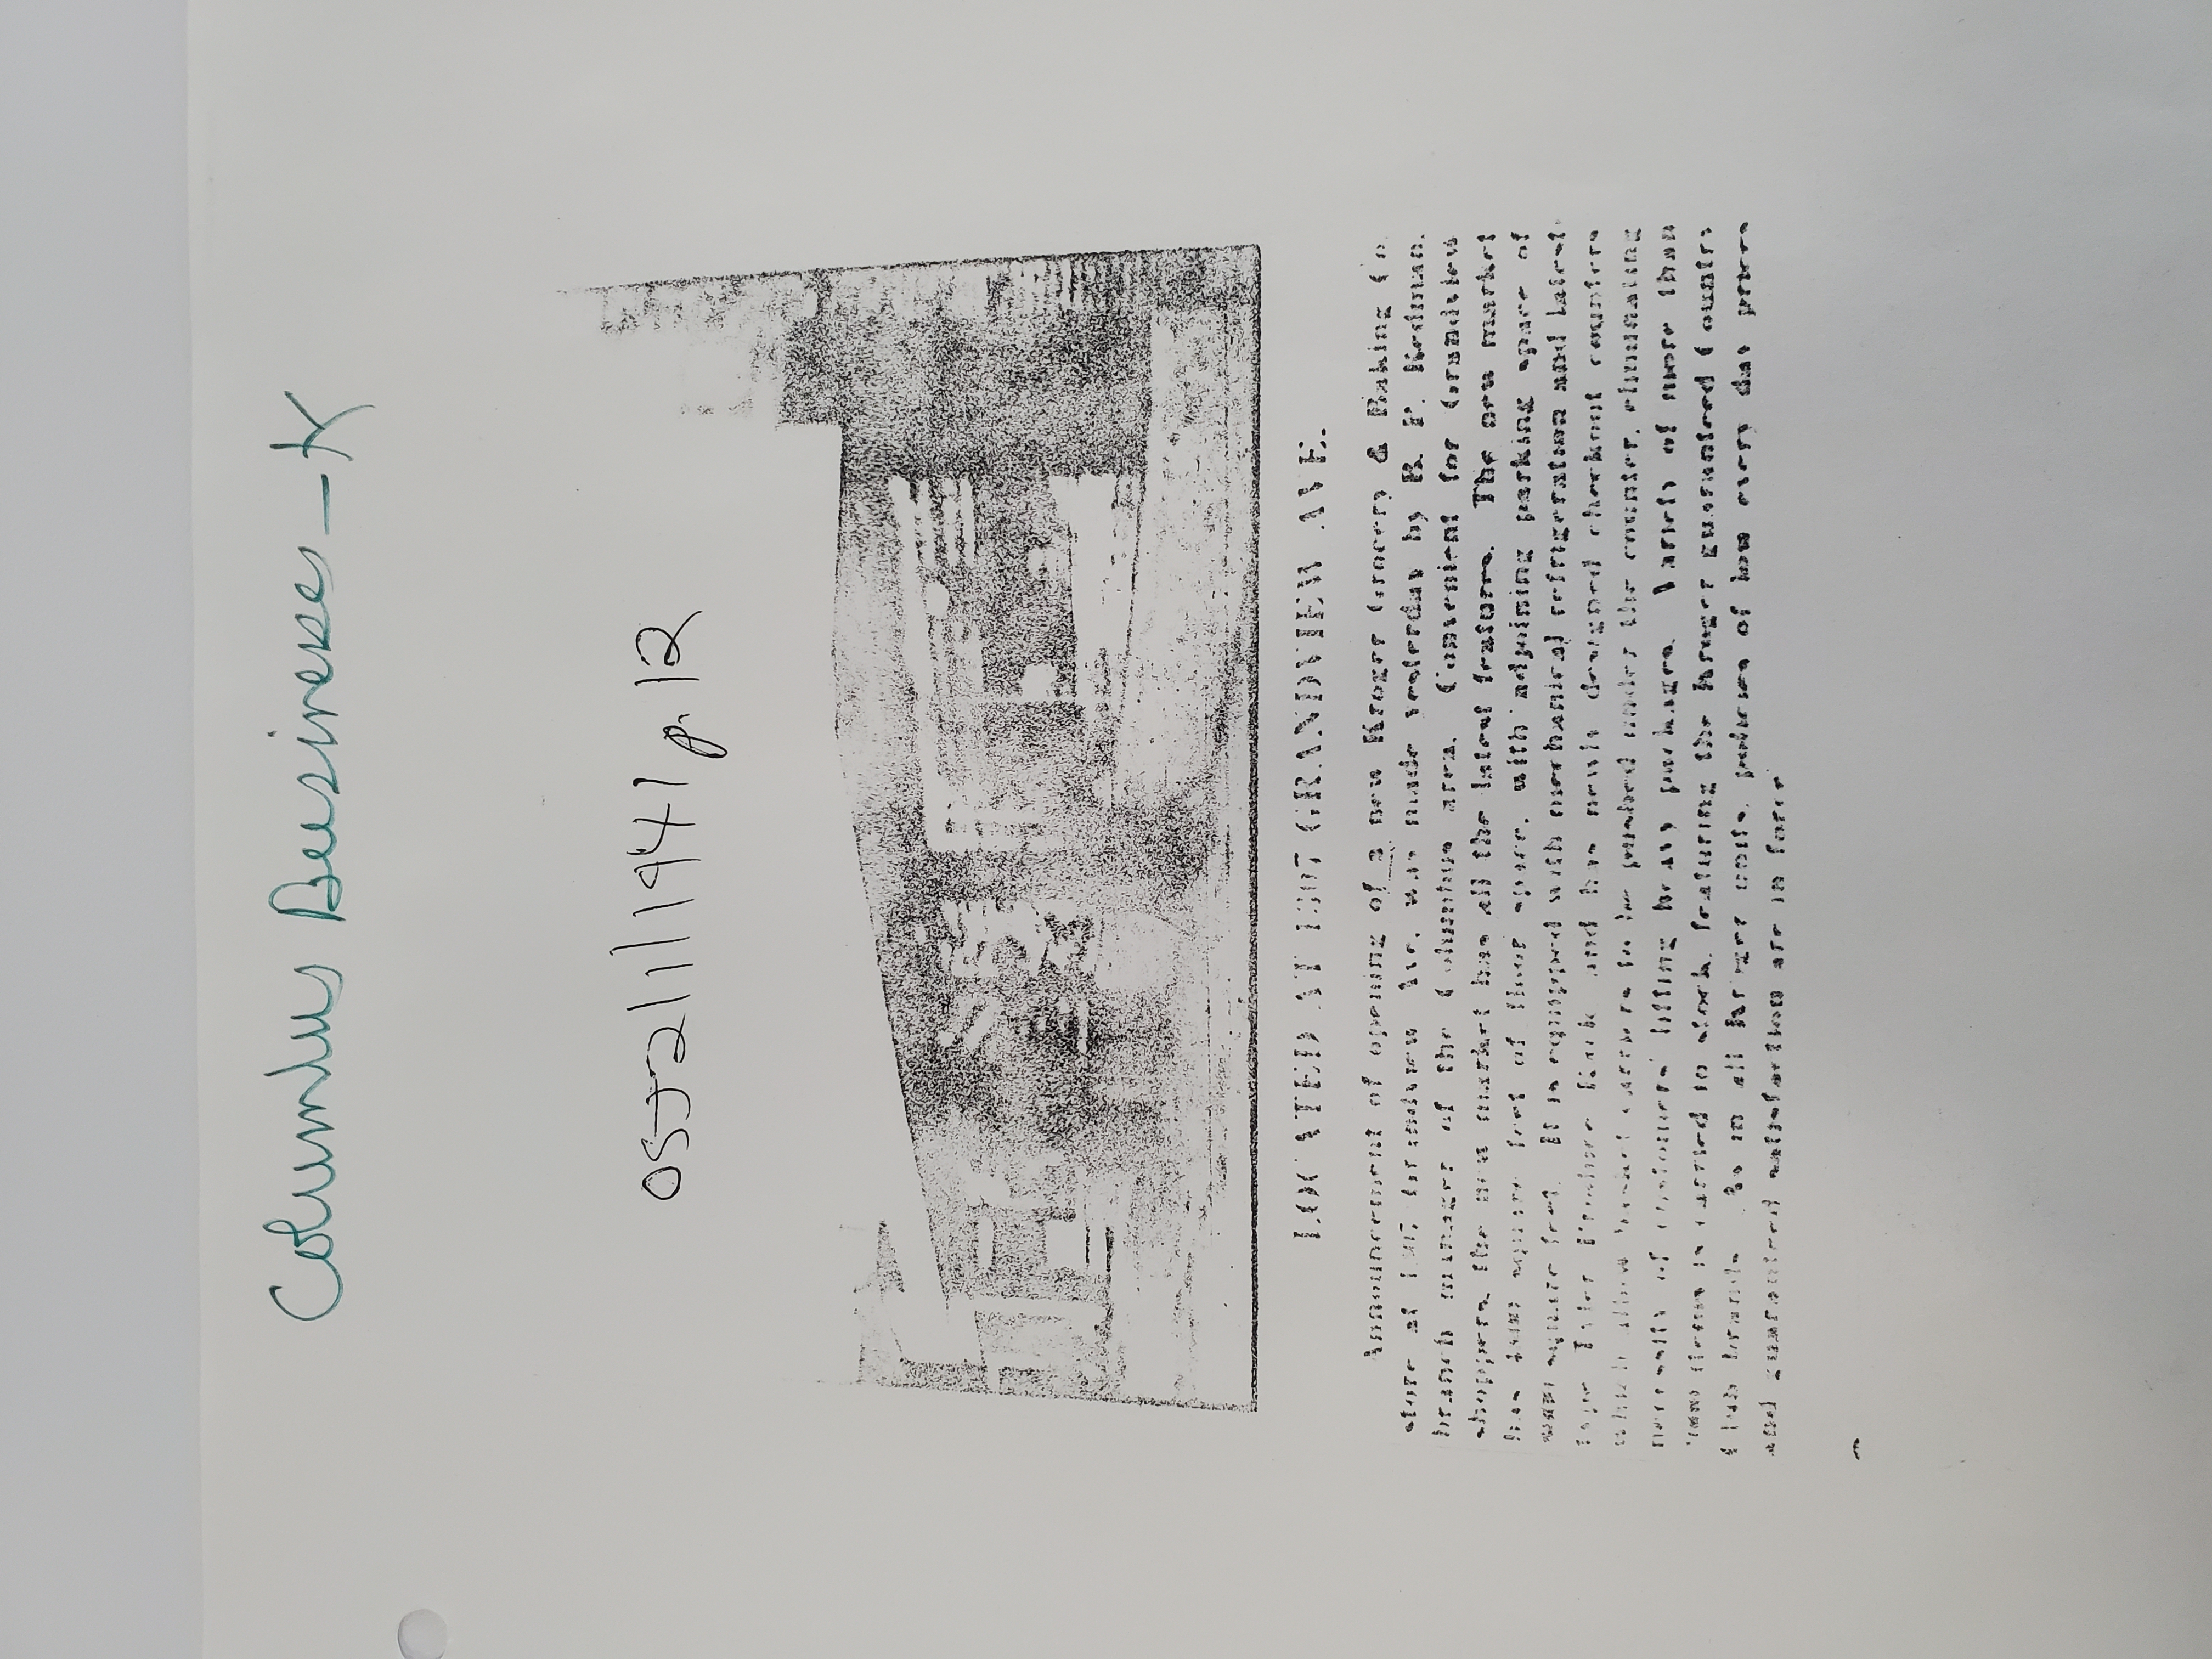 Columbus Businesses-K
OSJ 2/1/1941 p.12
LOCATED AT 1307 GRANDVIEW AVE.
Announcement of opening of a new Kroger Grocery & Baking Co.
store at Grandview Ave. was made yesterday by R. F. Redman,
branch manager of the Columbus area. Convenient for Grandview
shoppers the new market has all the latest features. The new market
has square feet of floor space, with adjoining parking space of
square feet. It is equipped with mechanical refrigeration and latest
type and has newly designed checkout counters
which allow to be pushed under the counter, eliminating
necessity of customers' lifting heavy purchases. Variety of more than
items is carried in stock, featuring the Kroger guaranteed Country
Club brands. As in all Kroger units, policies of low every day prices
and guaranteed satisfaction are in force.